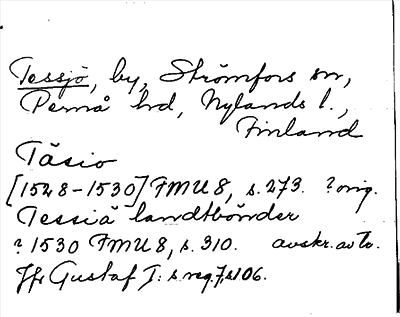 Tessjö, by, Strömfors sn,
Pernå hd, Nylands l.,
Finland
Täsio
[1528-1530] FMU 8, s. 273. ? orig.
Tessiä landtbönder
? 1530 FMU 8, s. 310. avskr. av to.
Jfr Gustaf I:s reg. 7, s 106.